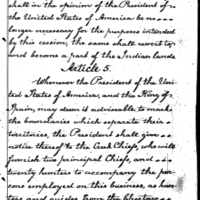 shall in the opinion of the President of
the United States of America be no
longer necessary for the purposes intended
by this cession, the same shall revert to
and become a part of the Indian lands
Article 5.
Whenever the President of the Uni-
ted States of America, and the King of
Spain, may deem it advisable to mark
the boundaries which separate their
territories, the President shall give
notice thereof to the Creek Chiefs, who will
furnish two principal Chiefs, and
twenty hunters to accompany the per-
sons employed on this business, as hun-
ters and guides from the